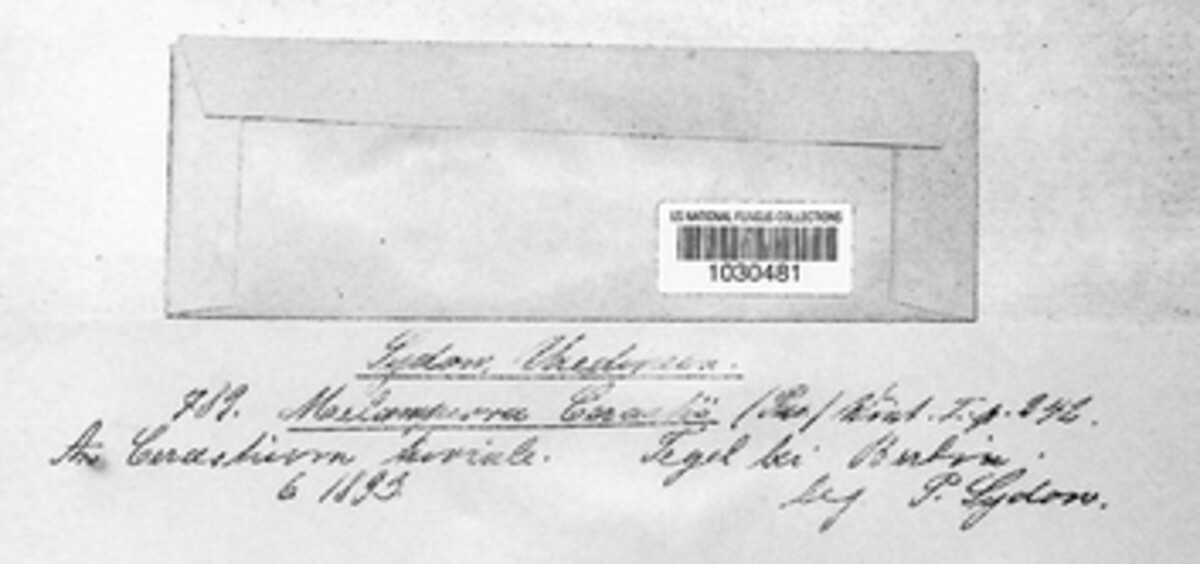 US NATIONAL FUNGUS COLLECTIONS
1030481
Sydow, Uredineen.
789. Melampsora Cerastii (Pers) Wint. I. p. 242.
An Cerastium triviale. Tegel bei Berlin.
6 1893 leg P. Sydow.